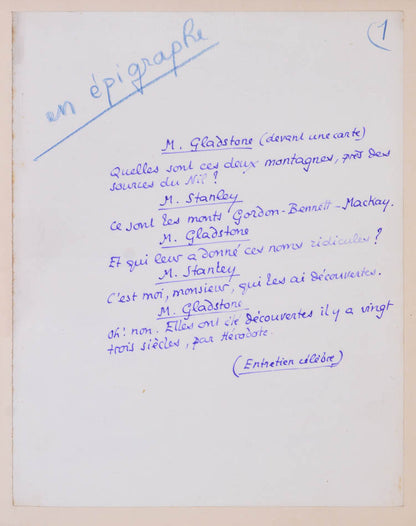 en épigraphe
1
M. Gladstone (devant une carte)
Quelles sont ces deux montagnes, près des
sources du Nil?
M. Stanley
Ce sont les monts Gordon-Bennett-Mackay.
M. Gladstone
Et qui leur a donné ces noms ridicules?
M. Stanley
C'est moi, monsieur, qui les ai découvertes.
M. Gladstone
Oh! non. Elles ont été découvertes il y a vingt
trois siècles, par Hérodote.
(Entretien célèbre)